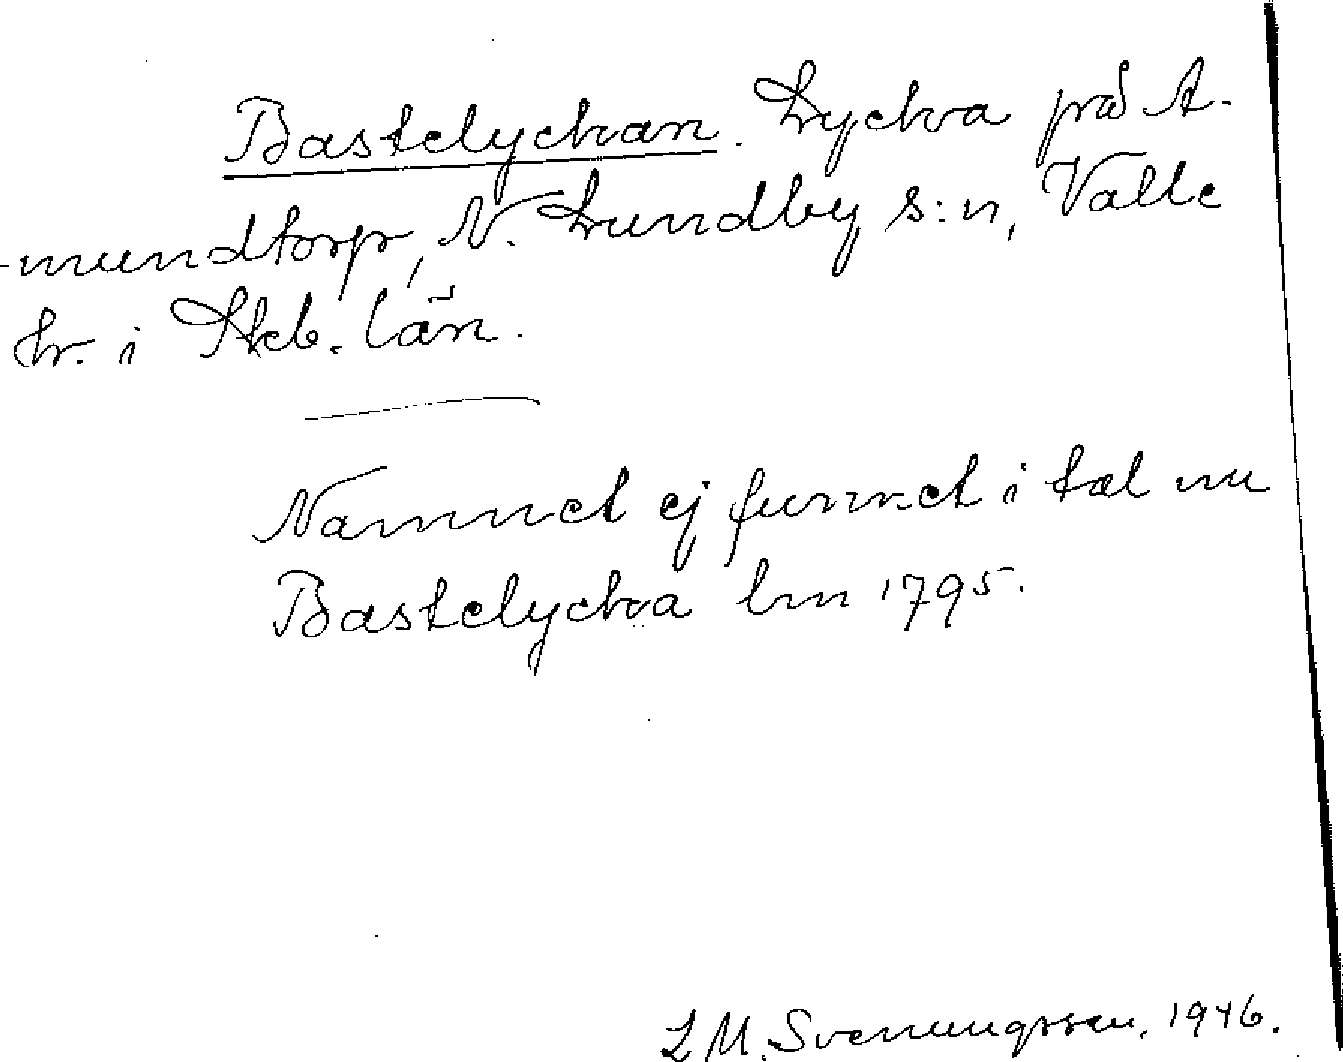 Bastelyckan. Lycka på A-
mundtorp, N. Lundby s:n, Valle
hr. i Skb. län.
Namnet ej funnet i tal nu
Bastelycka lm 1795.
L M. Svenungsson. 1946.